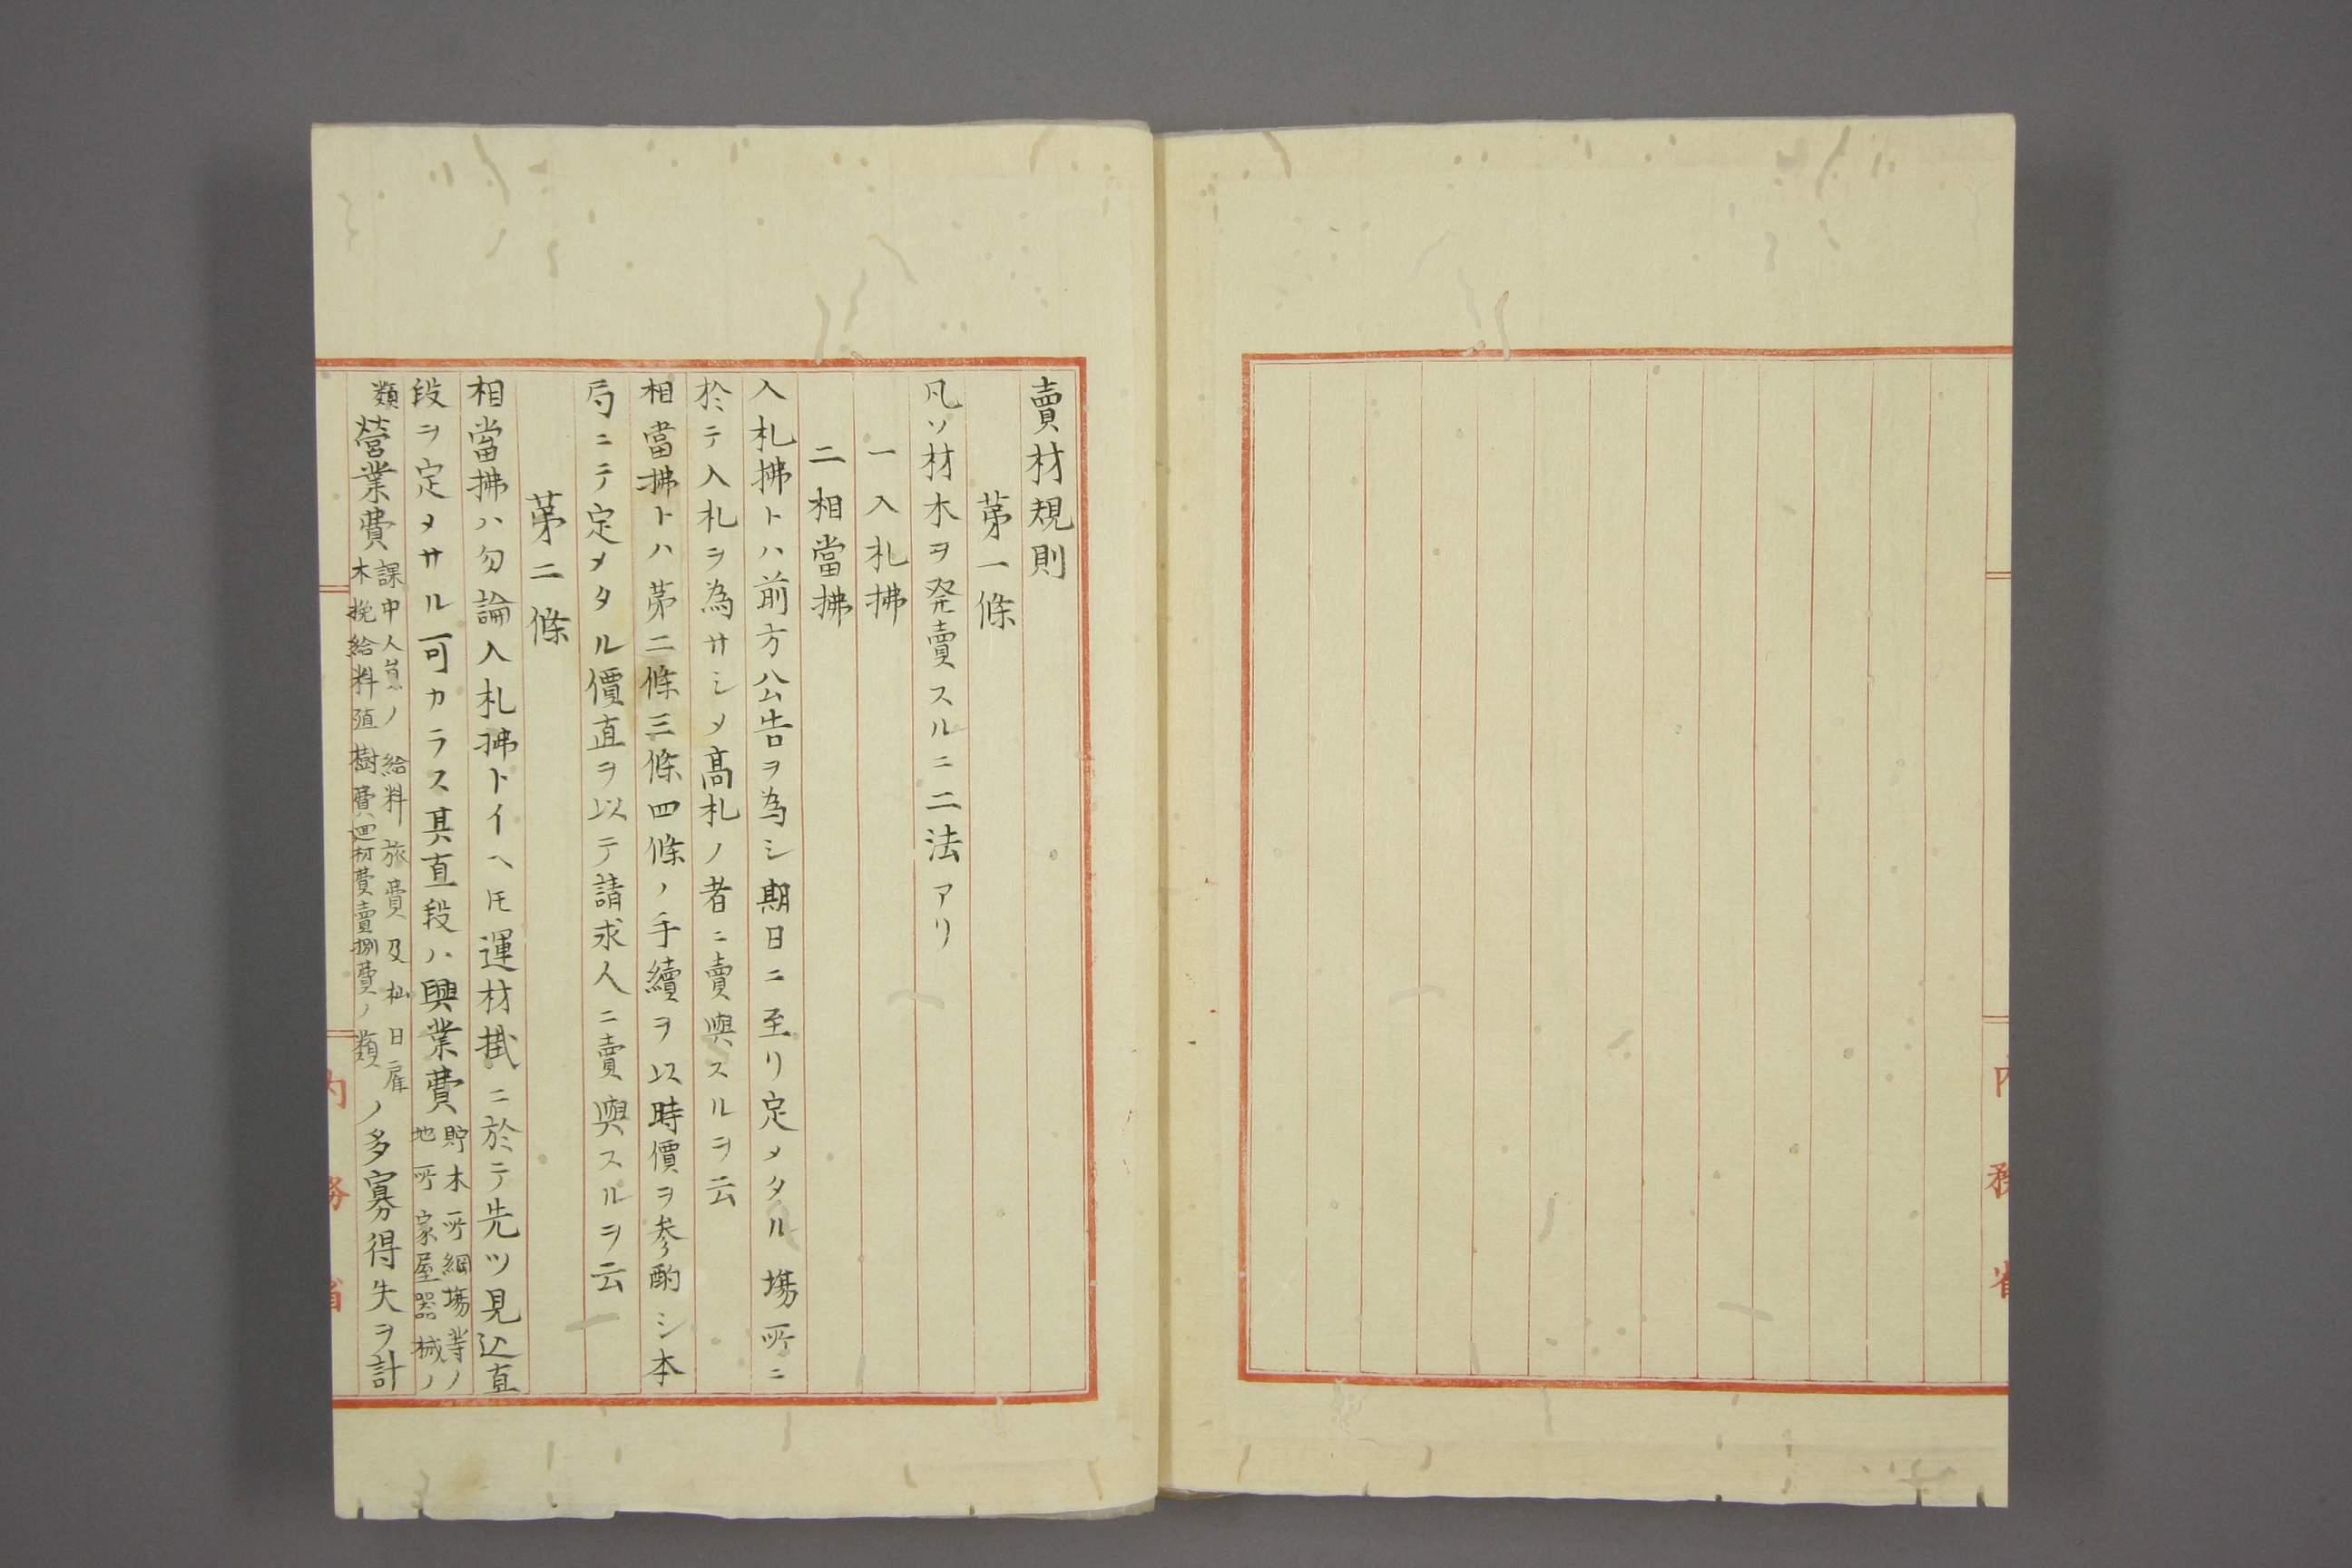 内務省
賣材規則
第一條
凡ソ材木ヲ発賣スルニ二法アリ
一入札拂
二相當拂
入札拂トハ前方公告ヲ為シ期日ニ至リ定メタル場所ニ
於テ入札ヲ為サシメ髙札ノ者ニ賣與スルヲ云
相當拂トハ第二條三條四條ノ手續ヲ以時價ヲ参酌シ本
局ニテ定メタル價直ヲ以テ請求人ニ賣與スルヲ云
第二條
相當拂ハ勿論入札拂トイヘ𪜈運材掛ニ於テ先ツ見込直
段ヲ定メサル可カラス其直段ハ興業費貯木所綱場等ノ
地所家屋器械ノ
類
營業費課中人員ノ給料旅費及杣日雇
木挽給料殖樹費廻材費賣捌費ノ類ノ多寡得失ヲ計
内務省